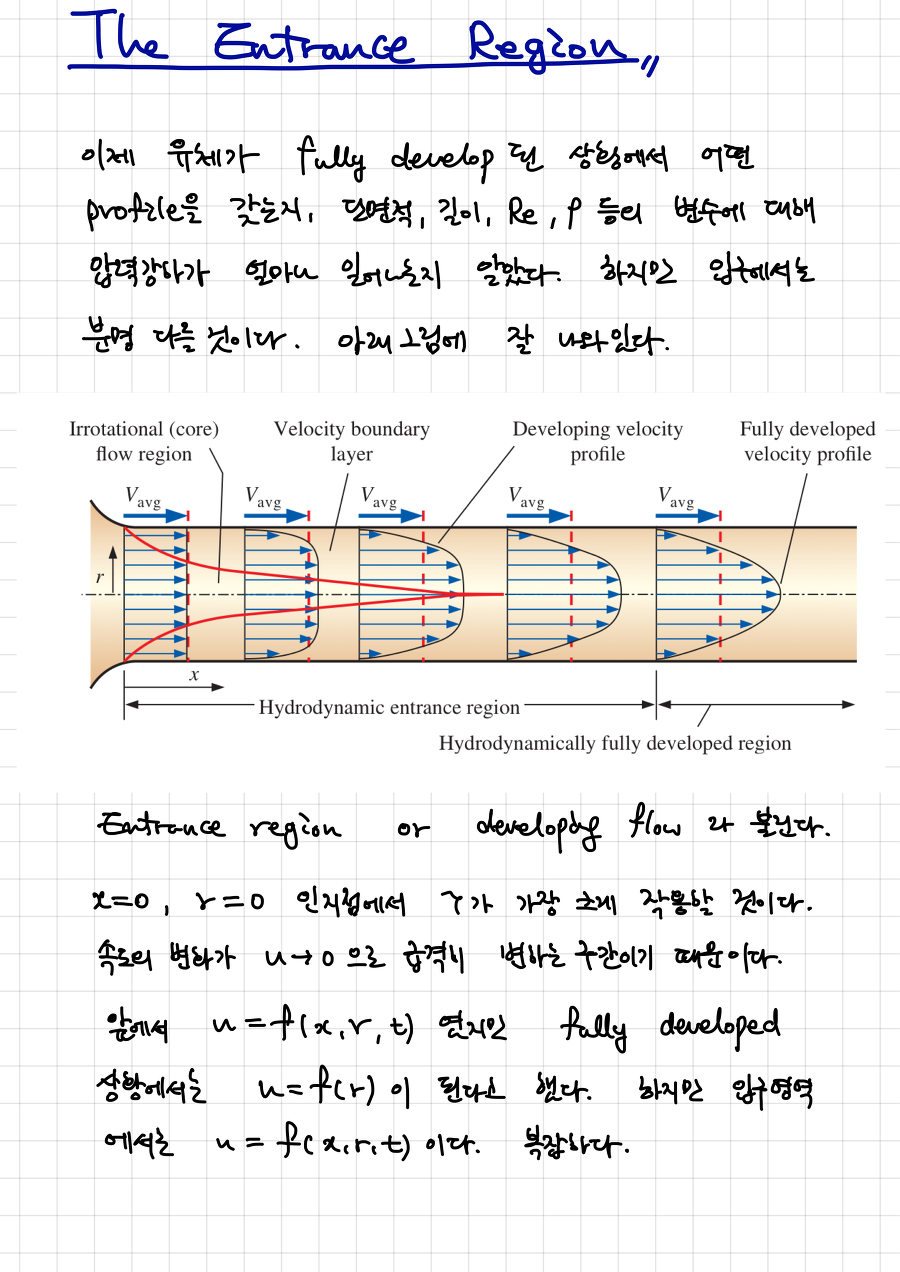 The Entrance Region
이제 유체가 fully develop 된 상황에서 어떤
profile을 갖는지, 단면적, 길이, Re, ρ 등의 변수에 대해
압력강하가 얼마나 일어나는지 알았다. 하지만 입구에서는
분명 다를 것이다. 아래 그림에 잘 나와있다.
Irrotational (core) flow region
Velocity boundary layer
Developing velocity profile
Fully developed velocity profile
Vavg Vavg Vavg Vavg Vavg
r
x
Hydrodynamic entrance region
Hydrodynamically fully developed region
Entrance region or developing flow 라 불린다.
x=0, r=0 인지점에서 τ가 가장 크게 작용할 것이다.
속도의 변화가 u→0 으로 급격히 변하는 구간이기 때문이다.
앞에서 u = f(x, r, t) 였지만 fully developed
상황에서는 u=f(r) 이 된다고 했다. 하지만 입구영역
에서는 u = f(x, r, t) 이다. 복잡하다.